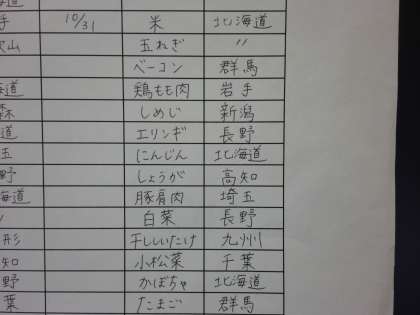 手 10/31 米 北海道
山 玉ねぎ 〃
ベーコン 群馬
海道 鶏もも肉 岩手
森 しめじ 新潟
道 エリンギ 長野
玉 にんじん 北海道
野 しょうが 高知
海道 豚肩肉 埼玉
〃 白菜 長野
形 干ししいたけ 九州
知 小松菜 千葉
野 かぼちゃ 北海道
葉 たまご 群馬